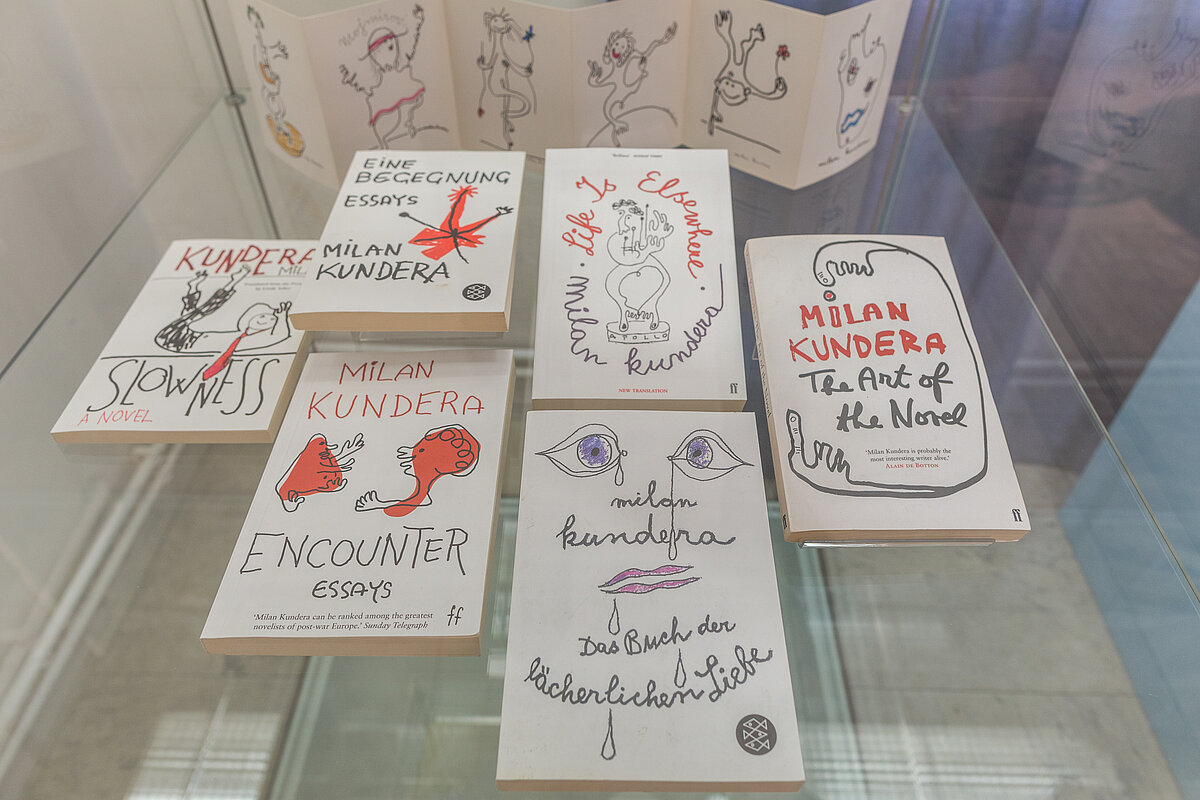 Mojmirovi
EINE
BEGEGNUNG
ESSAYS
MILAN
KUNDERA
KUNDERA
MIL
Translated from the French
by Linda Asher
SLOWNESS
A NOVEL
Life Is Elsewhere.
milan kundera
APOLLO
NEW TRANSLATION
ff
MILAN
KUNDERA
The Art of
the Novel
'Milan Kundera is probably the
most interesting writer alive.'
ALAIN DE BOTTON
ff
MILAN
KUNDERA
ENCOUNTER
ESSAYS
'Milan Kundera can be ranked among the greatest
novelists of post-war Europe.' Sunday Telegraph
ff
milan
kundera
Das Buch der
lächerlichen Liebe